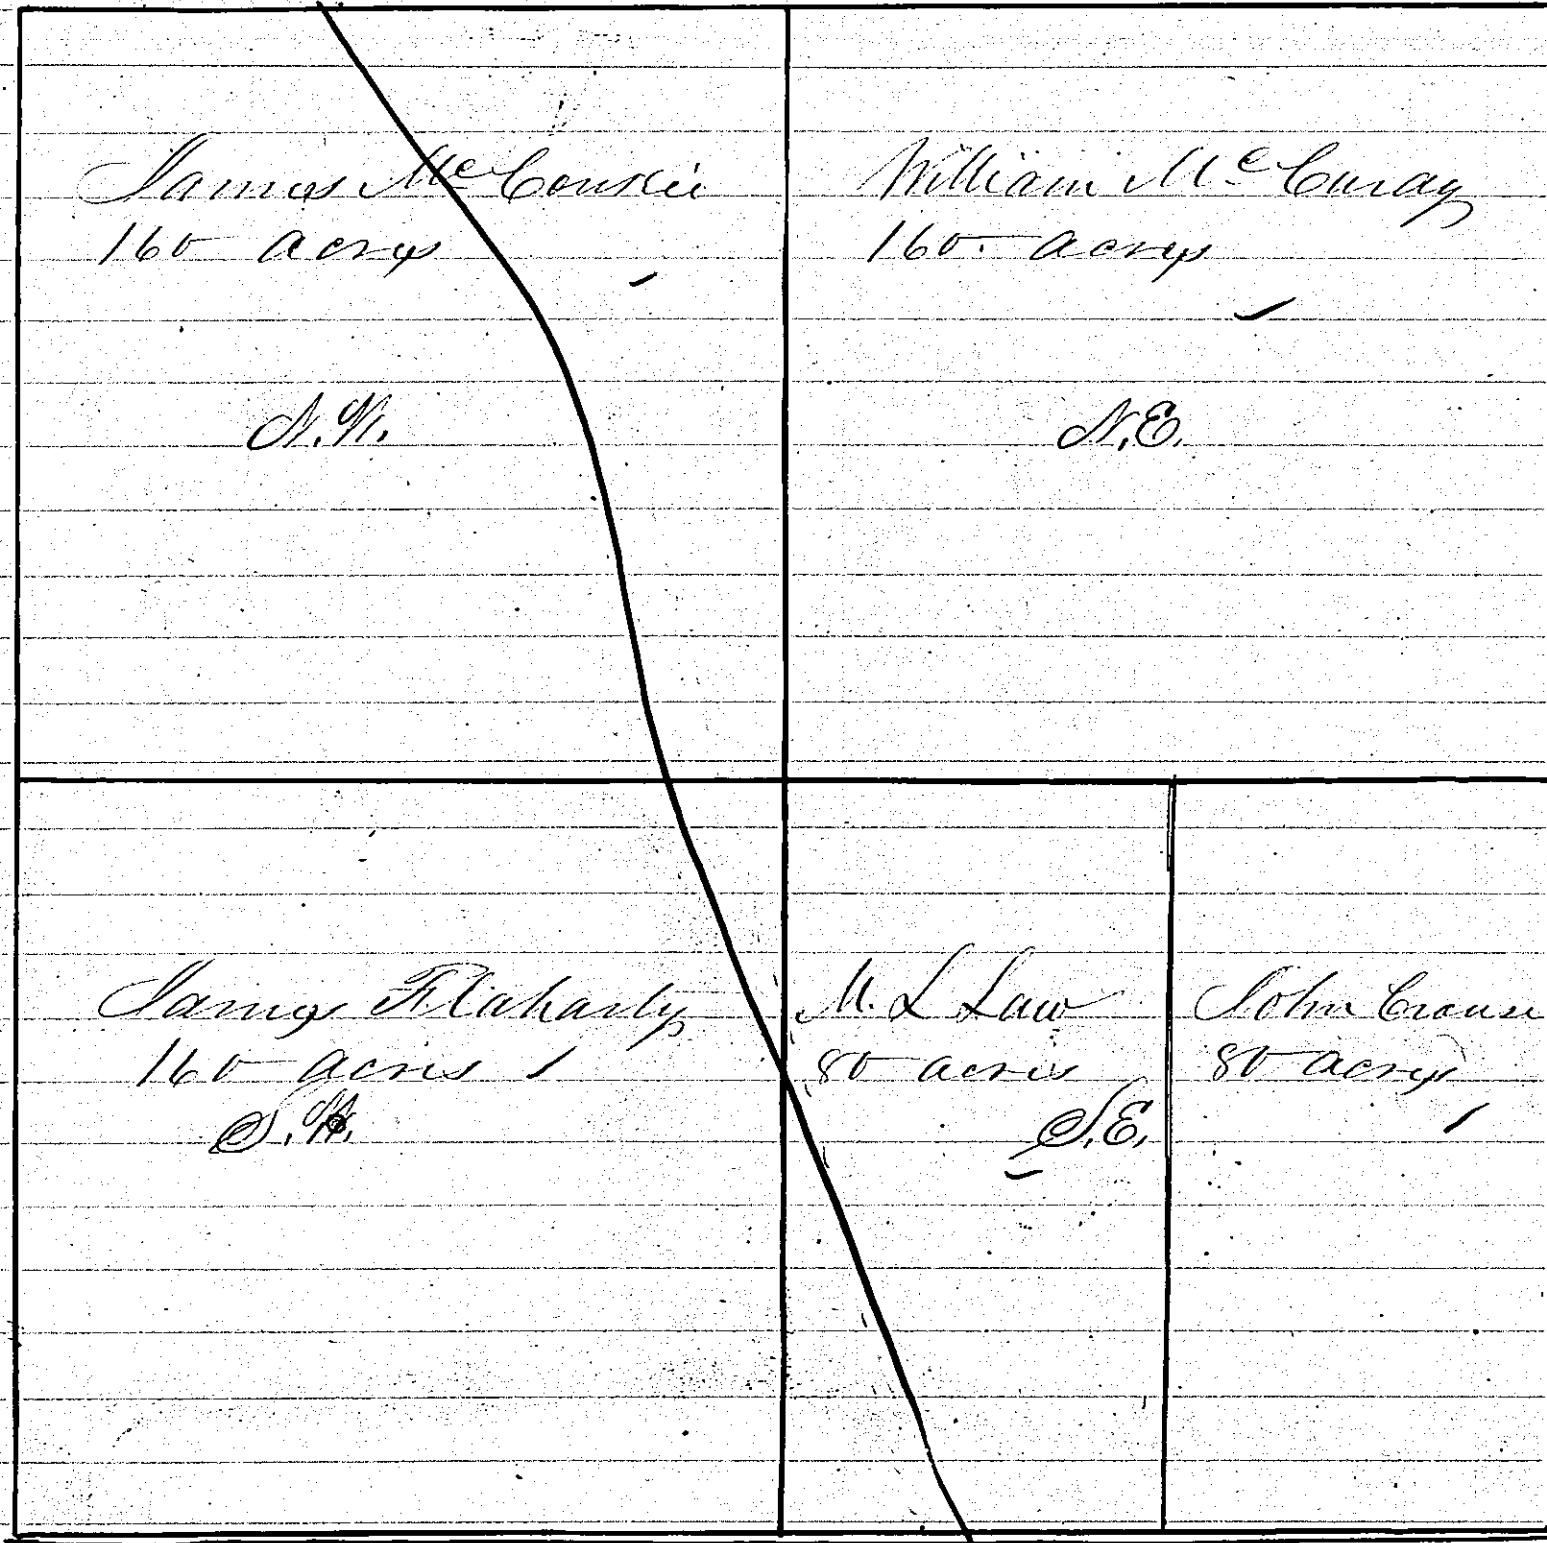 James McConkie
160 acres
N.W.
William McCuray
160 acres
N.E.
James Flaharty
160 acres
S.W.
M. L Law
80 acres
S.E.
John Crause
80 acres